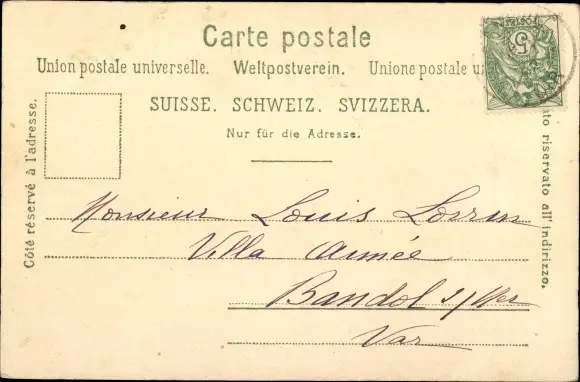 Carte postale
Union postale universelle. Weltpostverein. Unione postale u
SUISSE. SCHWEIZ. SVIZZERA.
Nur für die Adresse.
Côté réservé à l'adresse.
ato riservato all'indirizzo.
5
Monsieur Louis
Villa Aimée
Bandol s/Mer
Var